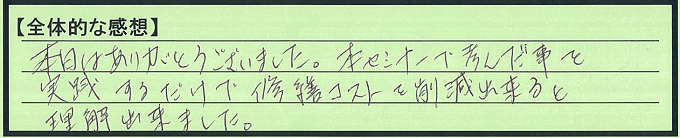 【全体的な感想】
本日はありがとうございました。本セミナーで学んだ事を
実践するだけで修繕コストを削減出来ると
理解出来ました。